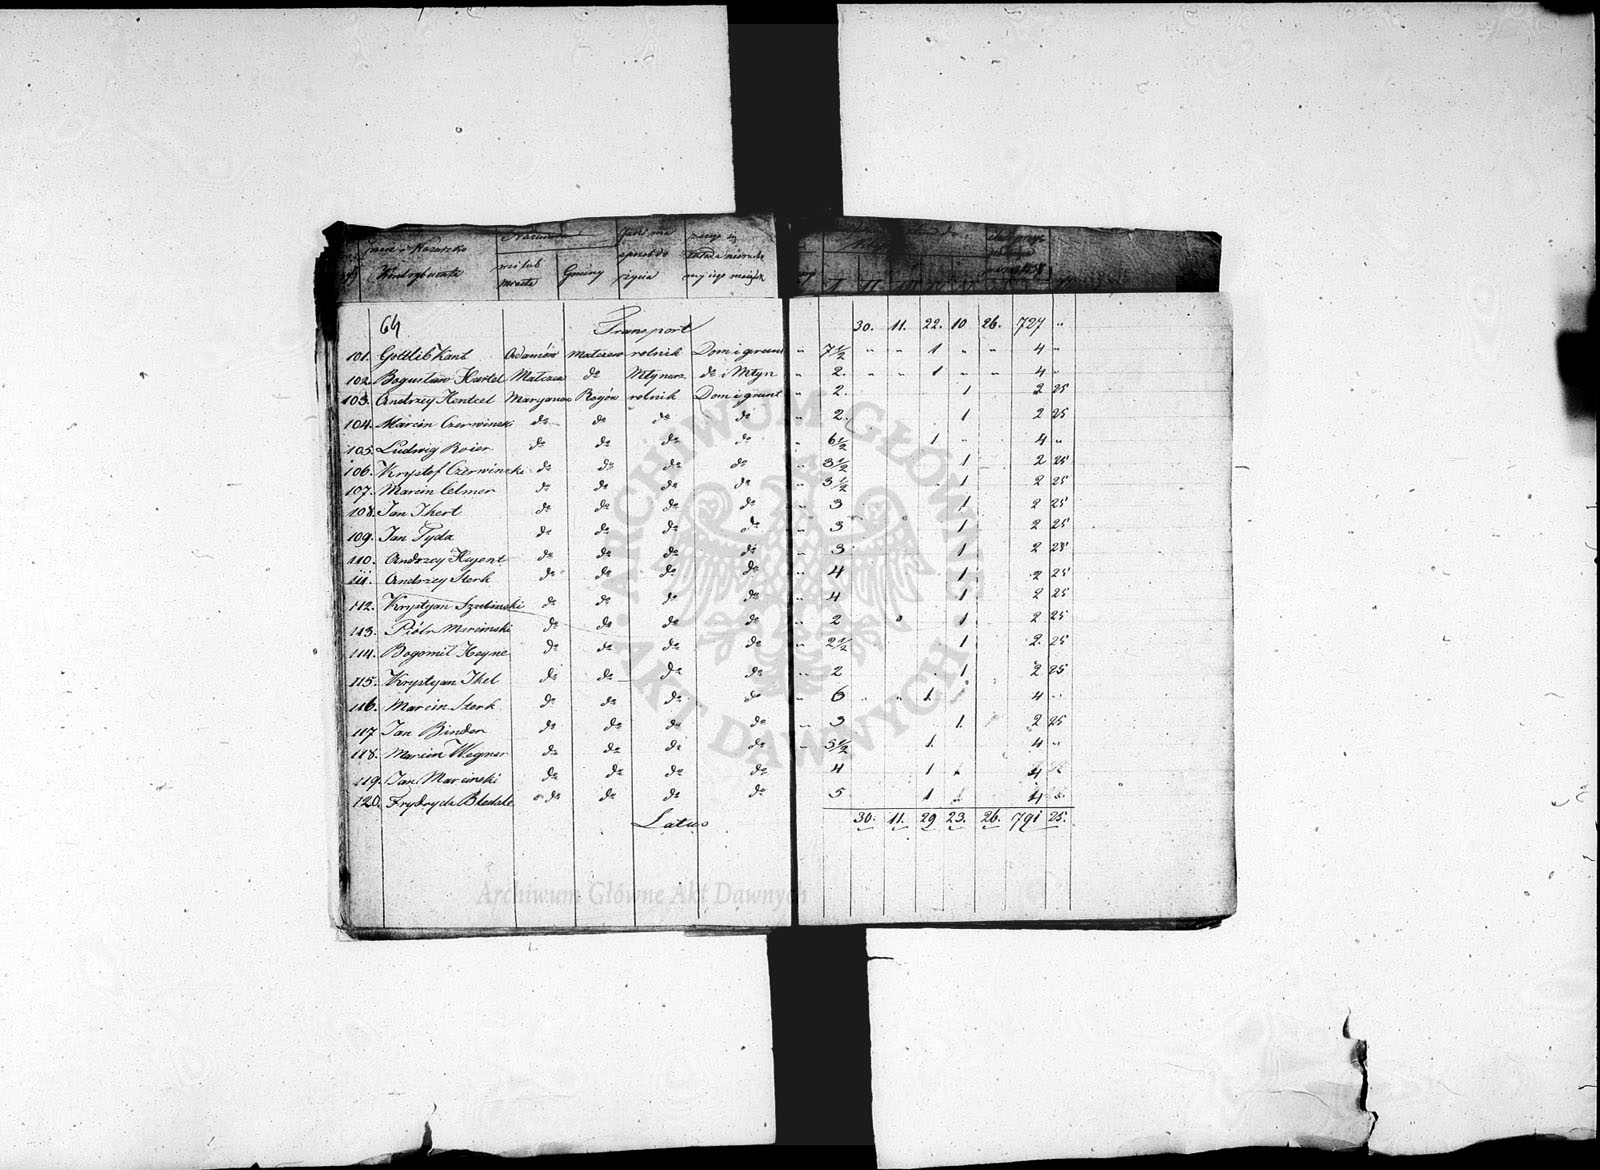 Imie i Nazwisko
Kontrybuenta
Nazwisko
wsi lub
miasta
Gminy
Jaki ma
sposób do
życia
64
Transport 30. 11. 22. 10 26. 727 "
101. Gottlib Kant Adamów Malczew rolnik Dom i grunt " 7½ " " 1 " " 4 "
102. Bogusław Hartel Malczew do Młynarz do i Młyn " 2. " " 1 " " 4 "
103. Andrzey Hentzel Maryanow Rogów rolnik Dom i grunt " 2. 1 2 25
104. Marcin Czerwinski do do do do " 2. 1 2 25
105. Ludwig Roier do do do do " 6½ 1 " 4 "
106. Krysztof Czerwinski do do do do " 3½ 1 2 25
107. Marcin Elmer do do do do " 3½ 1 2 25
108. Jan Ikert do do do do " 3 1 2 25
109. Jan Tyda do do do do " 3 1 2 25
110. Andrzey Heyent do do do do " 3 1 2 25
111. Andrzey Sterk do do do do " 4 1 2 25
112. Krystyan Szubinski do do do do " 4 1 2 25
113. Piotr Marcinski do do do do " 2 1 2 25
114. Bogomil Heyne do do do do " 2½ 1 2. 25
115. Krystyan Ikel do do do do " 2 1 2 25
116. Marcin Sterk do do do do " 6 " " 1. 4 "
117 Jan Binder do do do do " 3 1. 2 25
118. Marcin Wegner do do do do " 5½ 1. 4 "
119. Jan Marcinski do do do do 4 1 4
120. Frydryck do do do do 5. 1 4
Latus 30. 11. 29 23. 26. 791 25.
ARCHIWUM GŁÓWNE AKT DAWNYCH
Archiwum Główne Akt Dawnych